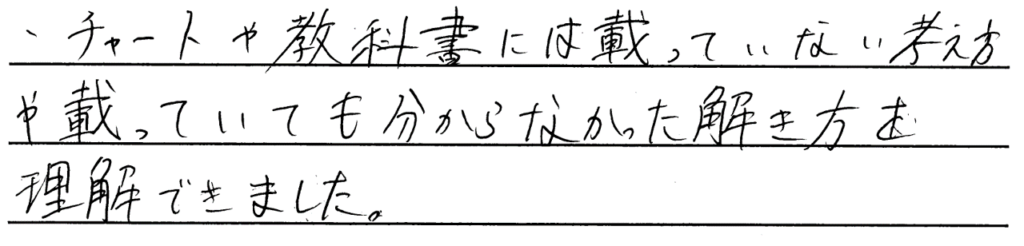 ・チャートや教科書には載っていない考え方
や載っていても分からなかった解き方も
理解できました。